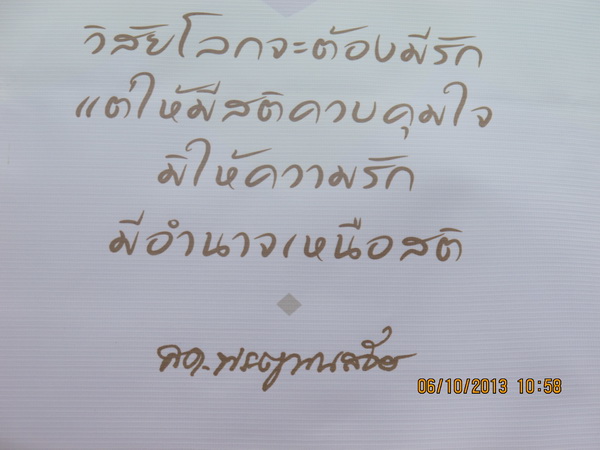 วิสัยโลกจะต้องมีรัก
แต่ให้มีสติควบคุมใจ
มิให้ความรัก
มีอำนาจเหนือสติ
06/10/2013 10:58